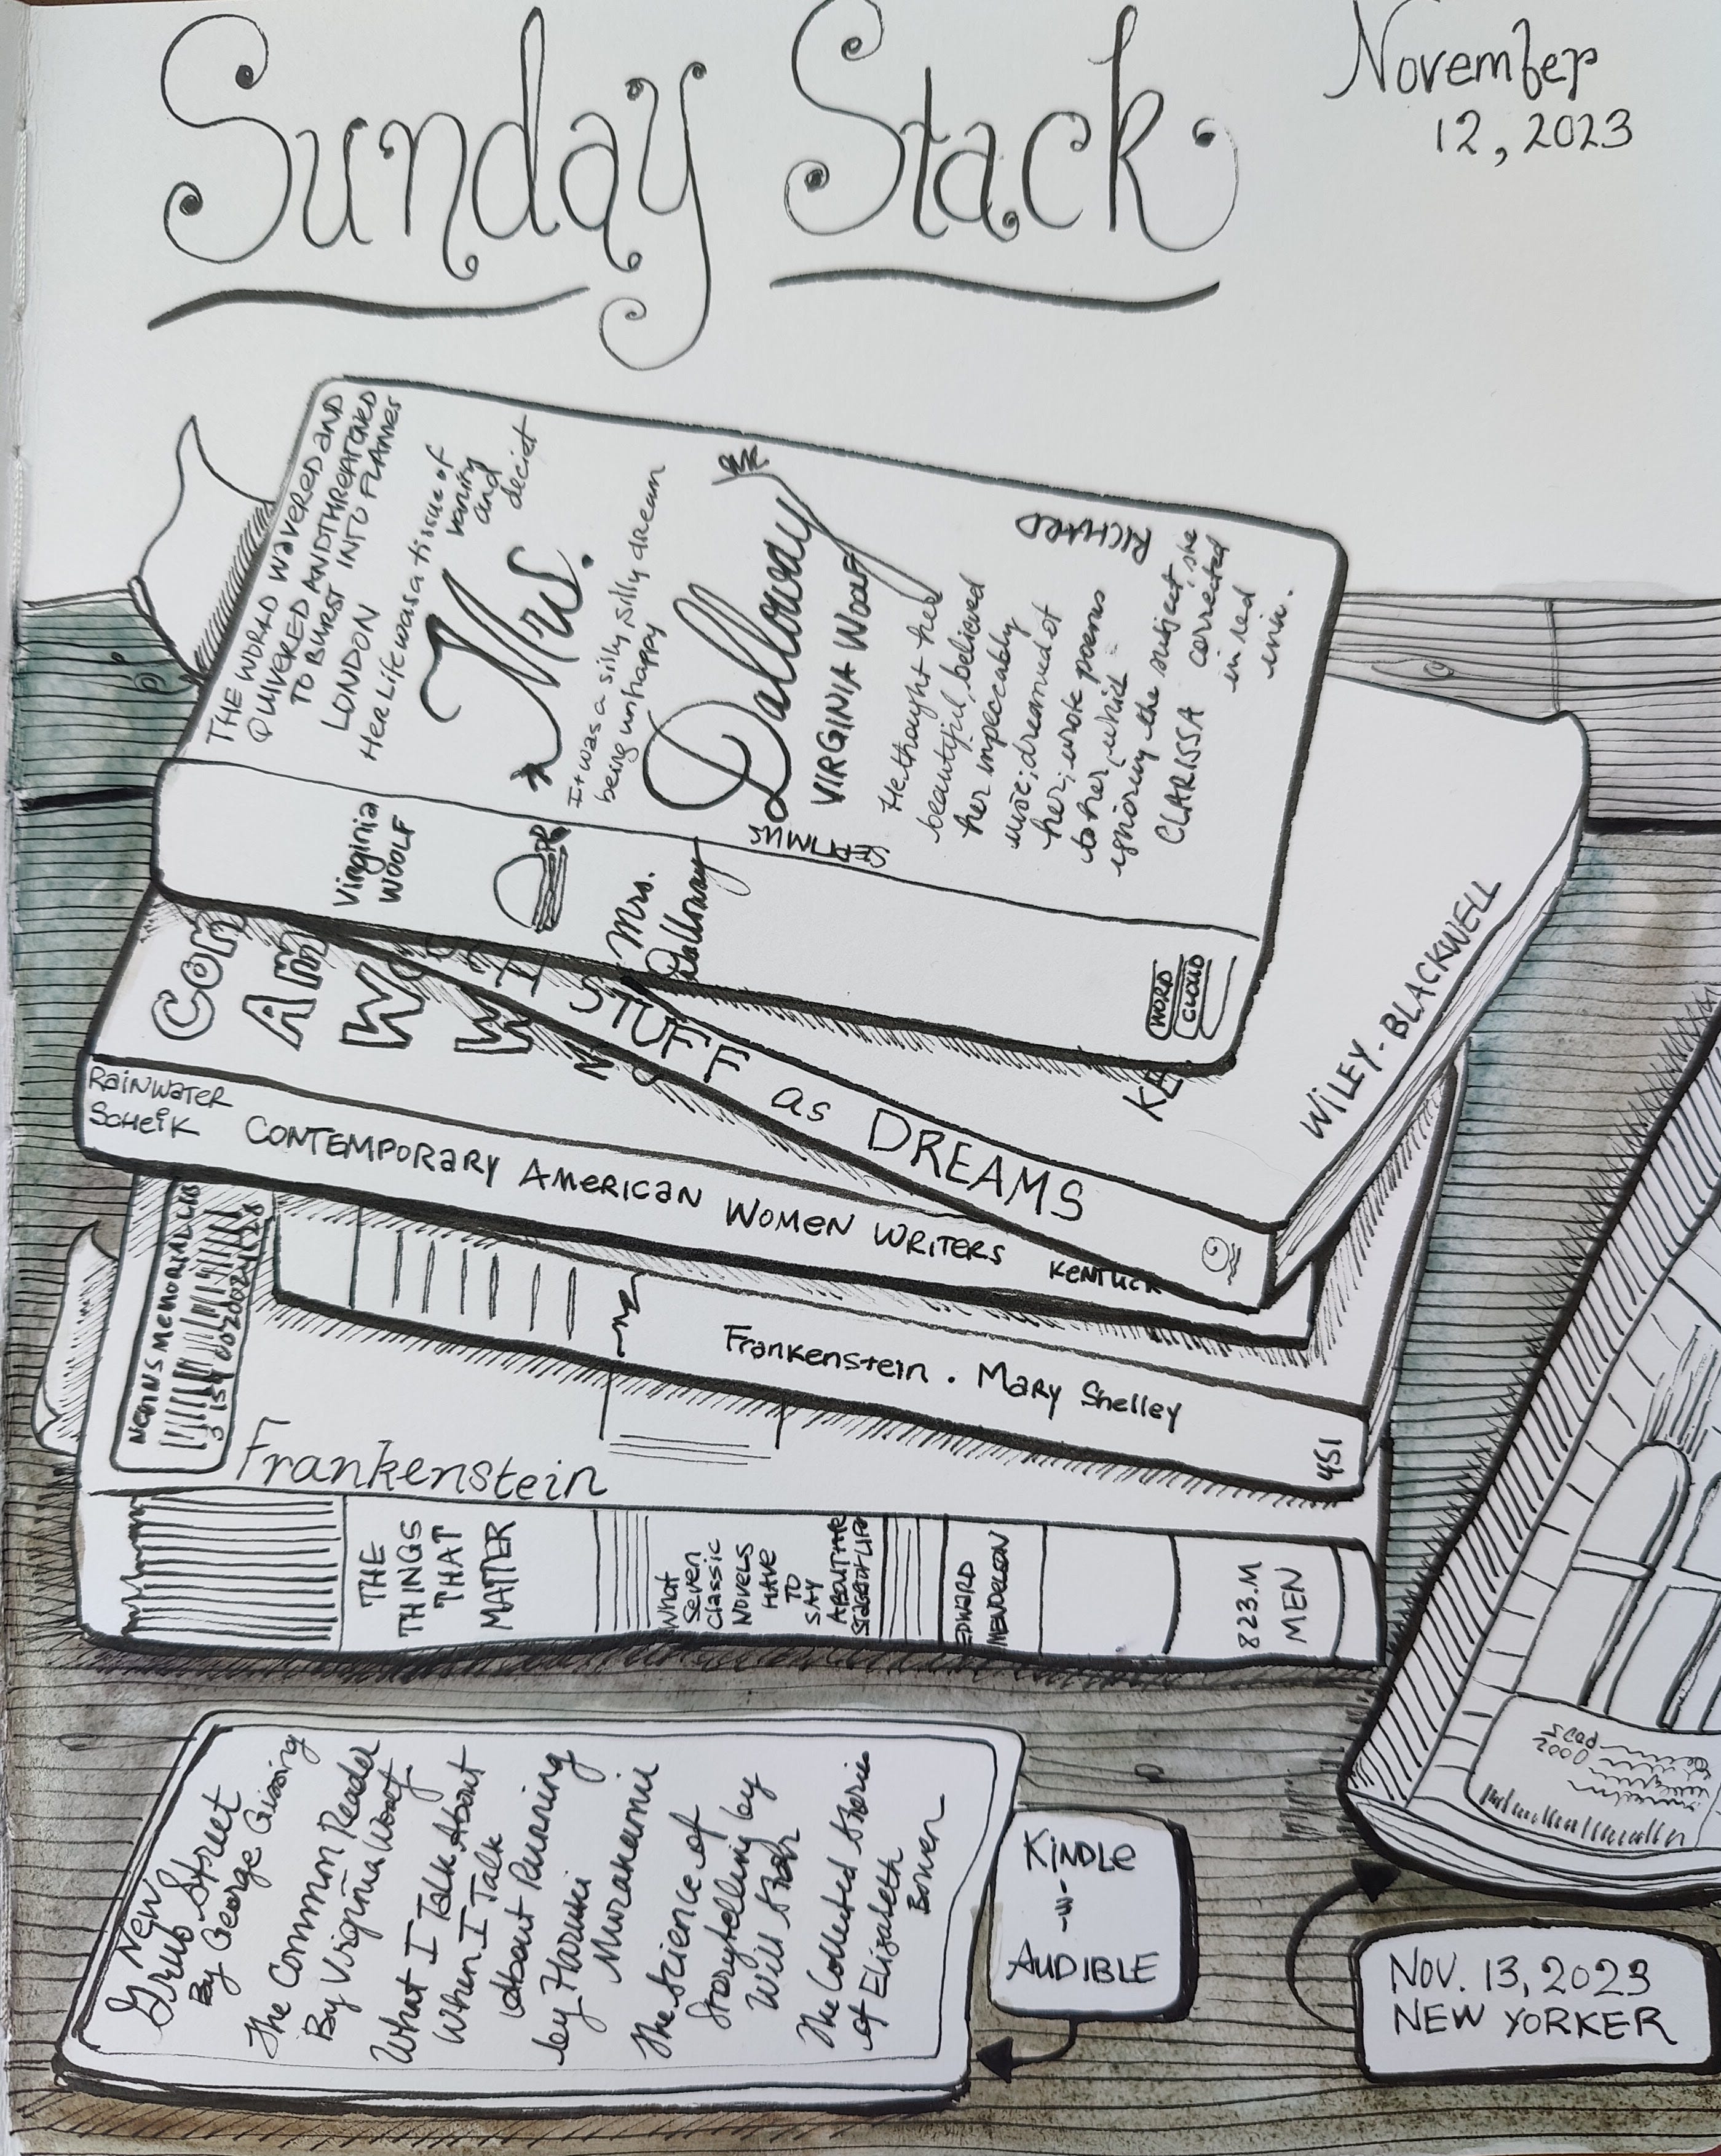 Sunday Stack
November
12, 2023
THE WORLD WAVERED and
QUIVERED AND THREATENED
TO BURST INTO FLAMES
LONDON
Her Life was a tissue of
vanity
and
deciet
Mrs.
It was a silly, silly dream
being unhappy
Dalloway
VIRGINIA WOOLF
SEPTIMUS
RICHARD
He thought her
beautiful, believed
her impeccably
wise; dreamed of
her, wrote poems
to her, which
ignoring the subject, she
CLARISSA corrected
in red
ink.
Virginia
WOOLF
Mrs.
Dalloway
WORD
CLOUD
Con
Am
W
W
STUFF as DREAMS
WILEY-BLACKWELL
Rainwater
Scheik
CONTEMPORARY AMERICAN WOMEN WRITERS
KENTUCK
NEVINS MEMORIAL LIB
Frankenstein . Mary Shelley
451
Frankenstein
THE
THINGS
THAT
MATTER
What
Seven
Classic
NOVELS
HAVE
TO
SAY
ABOUT THE
EDWARD
MENDELSON
823.M
MEN
New
Grub Street
By George Gissing
The Common Reader
By Virginia Woolf
What I Talk About
When I Talk
About Running
by Haruki
Murakami
The Science of
Storytelling by
Will
The Collected Stories
of Elizabeth
Bowen
KINDLE
AUDIBLE
NOV. 13, 2023
NEW YORKER